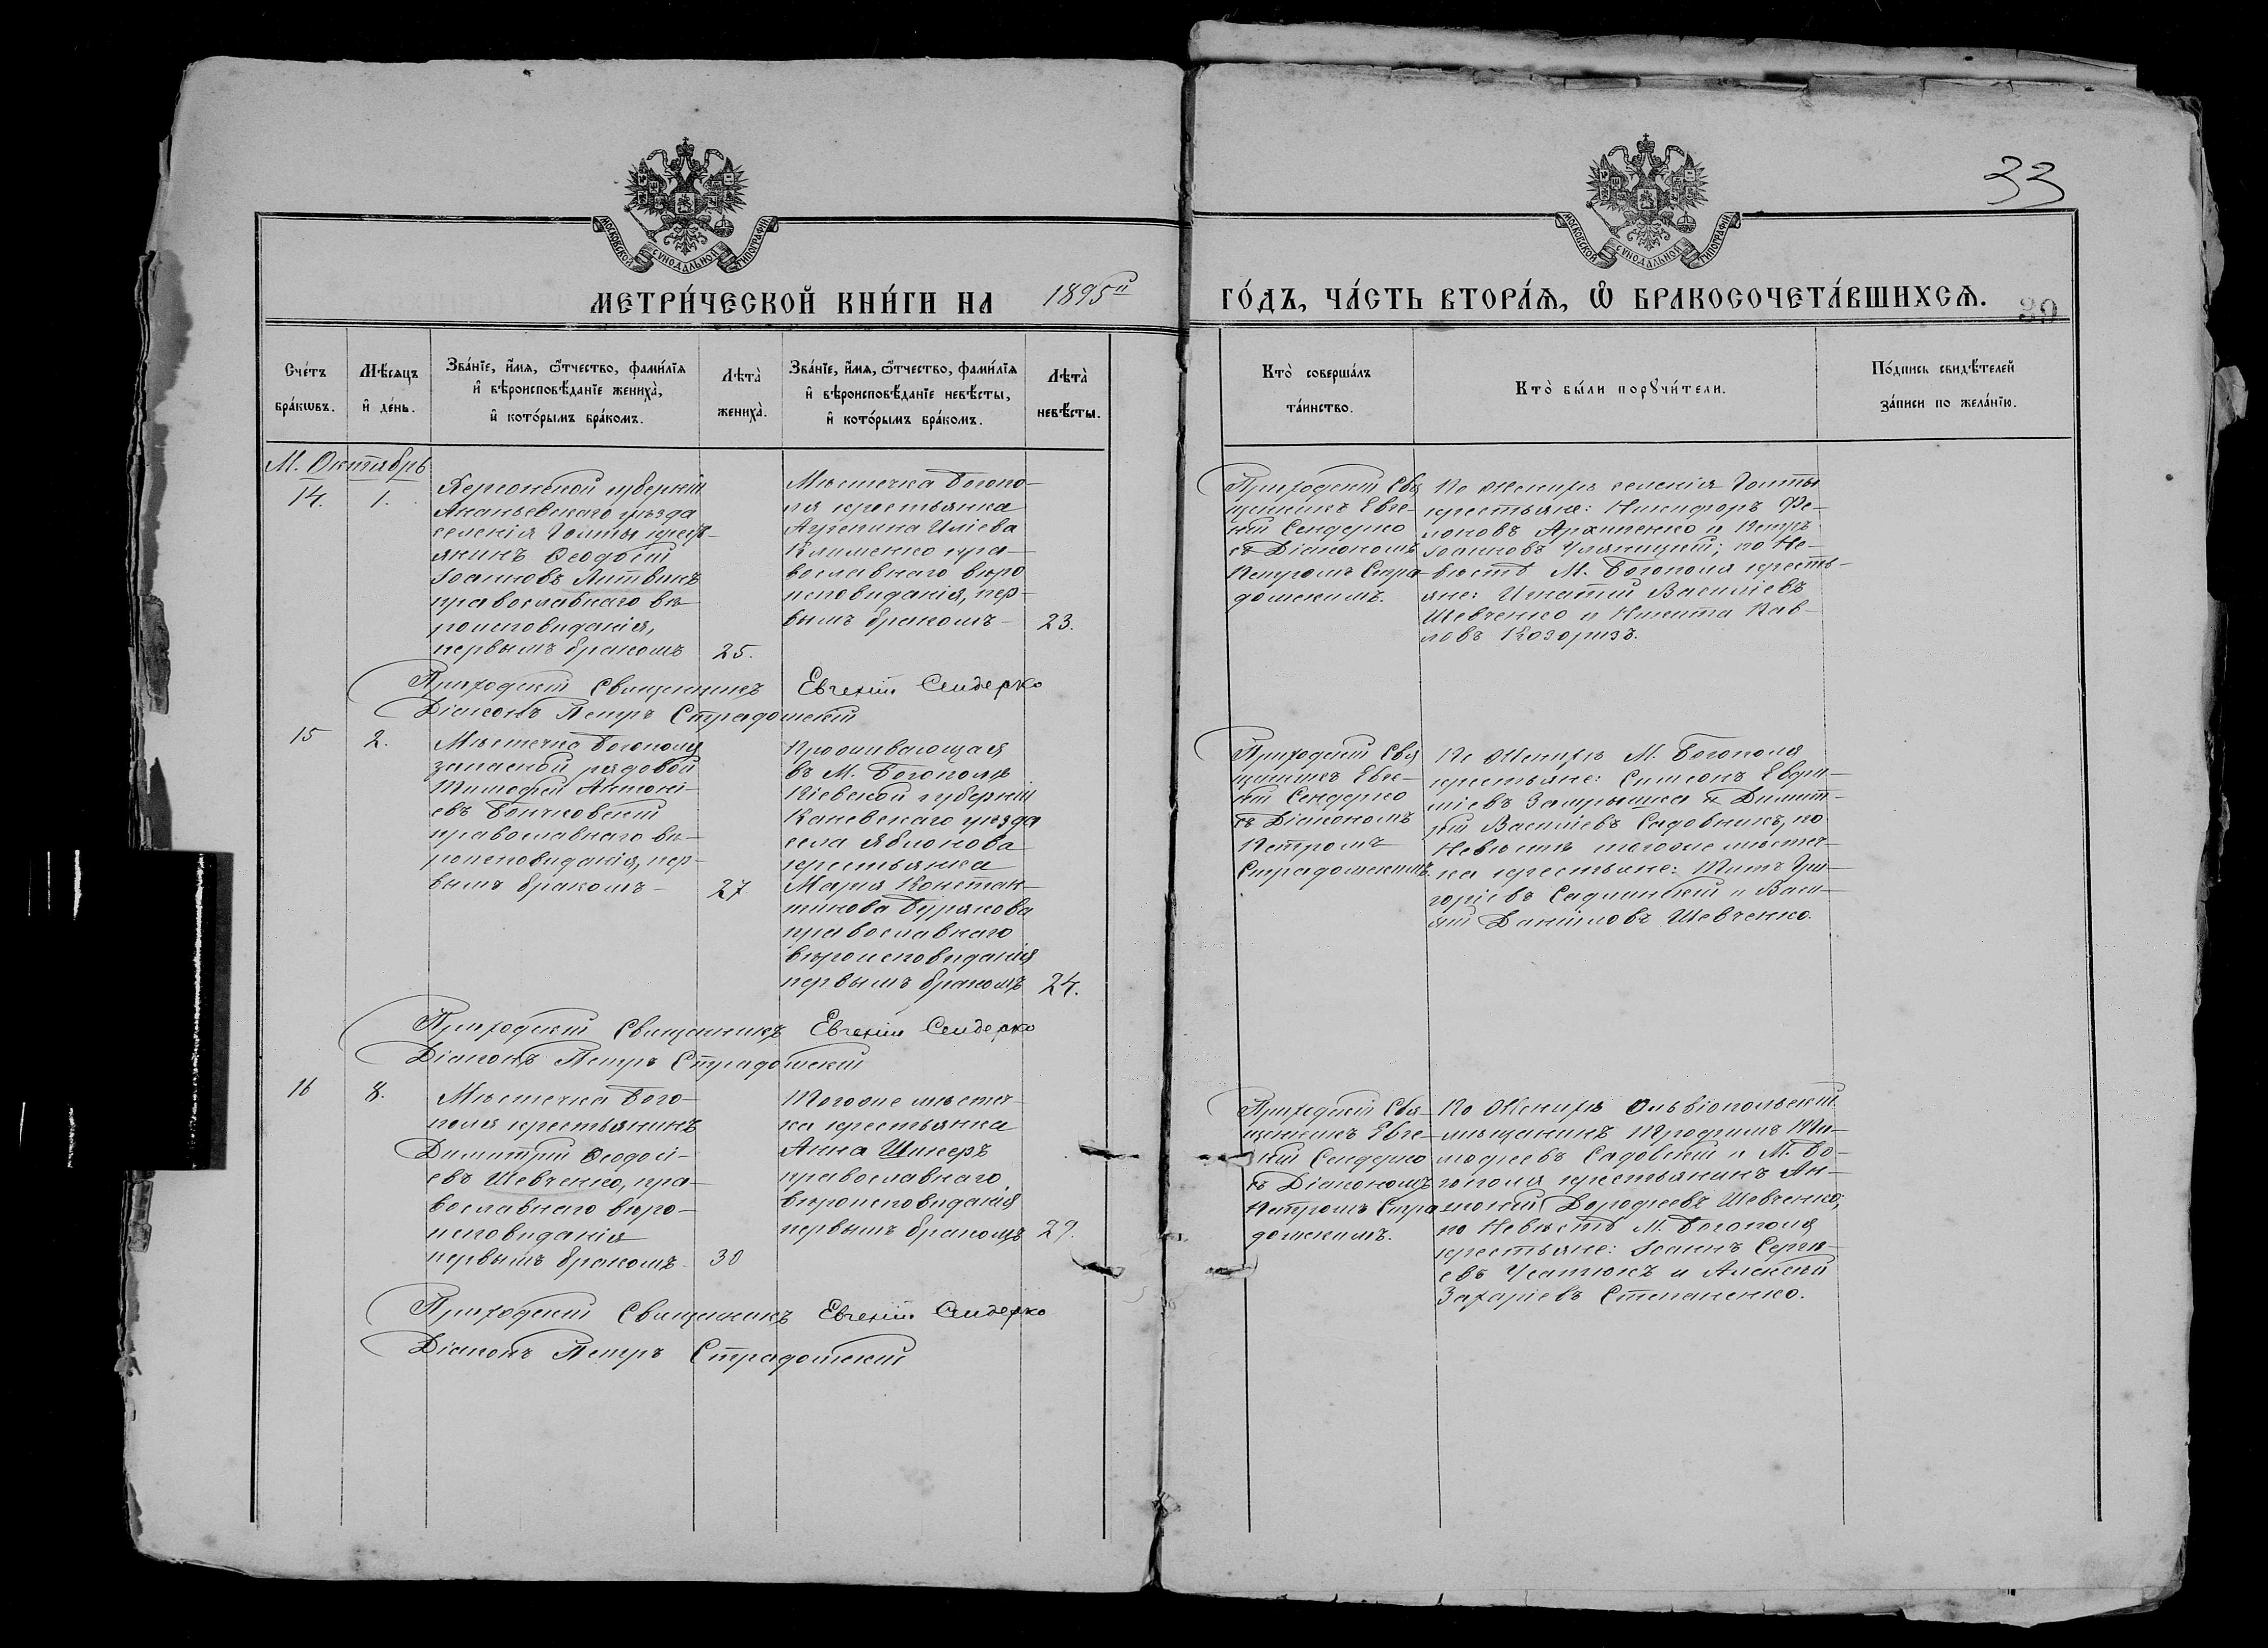 33
МОСКОВСКОЙ СУНОДАЛЬНОЙ ТИПОГРАФІИ
МОСКОВСКОЙ СУНОДАЛЬНОЙ ТИПОГРАФІИ
МЕТРИ́ЧЕСКОЙ КНИ́ГИ НА 1895й
ГО́ДЪ, ЧА́СТЬ ВТОРА́Ѧ, Ѽ БРАКОСОЧЕТА́ВШИХСѦ.
39
Сче́тъ
бра́кѡвъ.
Мѣ́сяцъ
и҆ де́нь.
Зва́нїе, и҆́мѧ, ѻ҆́тчество, фами́лїѧ
и҆ вѣроисповѣ́данїе жениха̀,
и҆ кото́рымъ бра́комъ.
Лѣта̀
жениха̀.
Зва́нїе, и҆́мѧ, ѻ҆́тчество, фами́лїѧ
и҆ вѣроисповѣ́данїе невѣ́сты,
и҆ кото́рымъ бра́комъ.
Лѣта̀
невѣ́сты.
Кто̀ соверша́лъ
та́инство.
Кто̀ бы́ли порꙋчи́тели.
По́дпись свидѣ́телей
за́писи по жела́нїю.
М. Октябрь
14.
1.
Херсонской губерніи
Ананьевскаго уѣзда
селенія Голты крест-
янинъ Ѳеодосій
Іоанновъ Литвинъ
православнаго вѣ-
роисповѣданія,
первымъ бракомъ
25.
Мѣстечка Богопо-
ля крестьянка
Агрепина Иліева
Клименко пра-
вославнаго вѣро
исповѣданія, пер-
вымъ бракомъ
23.
Приходскій Свя
щенникъ Евге-
ній Сендерко
съ Діакономъ
Петромъ Стра-
домскимъ.
По Женихѣ селенія Голты
крестьяне: Никифоръ Фи-
лоновъ Архипенко и Петръ
Іоанновъ Уляницкій; по Не-
вѣстѣ М. Богополя кресть-
яне: Игнатій Василіевъ
Шевченко и Никита Пав-
ловъ Козоризъ.
Приходскій Священникъ Евгеній Сендерко
Діаконъ Петръ Страдомскій
15
2.
Мѣстечка Богополя
запасной рядовой
Тимофей Антоні-
евъ Бончковскій
православнаго вѣ-
роисповѣданія, пер-
вымъ бракомъ
27
Проживающая
въ М. Богополѣ
Кіевской губерніи
Каневскаго уѣзда
села Яблонова
крестьянка
Марія Констан-
тинова Бурякова
православнаго
вѣроисповѣданія
первымъ бракомъ
24.
Приходскій Свя
щенникъ Евге-
ній Сендерко
съ Діакономъ
Петромъ
Страдомскимъ.
По Женихѣ М. Богополя
крестьяне: Симеонъ
и Димит-
рій Василіевъ Садовникъ, по
Невѣстѣ тогоже мѣстеч-
ка крестьяне: Титъ Гри-
горіевъ и Васи-
лій Даніиловъ Шевченко.
Приходскій Священникъ Евгеній Сендерко
Діаконъ Петръ Страдомскій
16
8.
Мѣстечка Бого-
поля крестьянинъ
Димитрій Ѳеодосі-
евъ Шевченко, пра-
вославнаго вѣро-
исповѣданія
первымъ бракомъ
30
Тогоже мѣстеч-
ка крестьянка
Анна Шнеръ
православнаго
вѣроисповѣданія
первымъ бракомъ
Приходскій Свя-
щенникъ Евге-
ній Сендерко
съ Діакономъ
Петромъ Стра
домскимъ.
По Женихѣ Ольвіопольскій
мѣщанинъ Трофимъ Ти-
мофеевъ Садовскій и М. Бо-
гополя крестьянинъ Ан-
тоній Дорофеевъ Шевченко;
по Невѣстѣ М. Богополя
крестьяне: Іоаннъ Сергі-
евъ Усатюкъ и Алексѣй
Захаріевъ Степаненко.
Приходскій Священникъ Евгеній Сендерко
Діаконъ Петръ Страдомскій